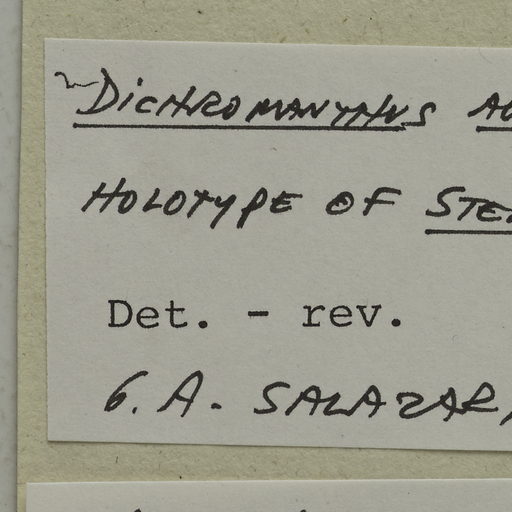 DICHROMANTHUS
HOLOTYPE OF
Det. - rev.
G. A. SALAZAR,